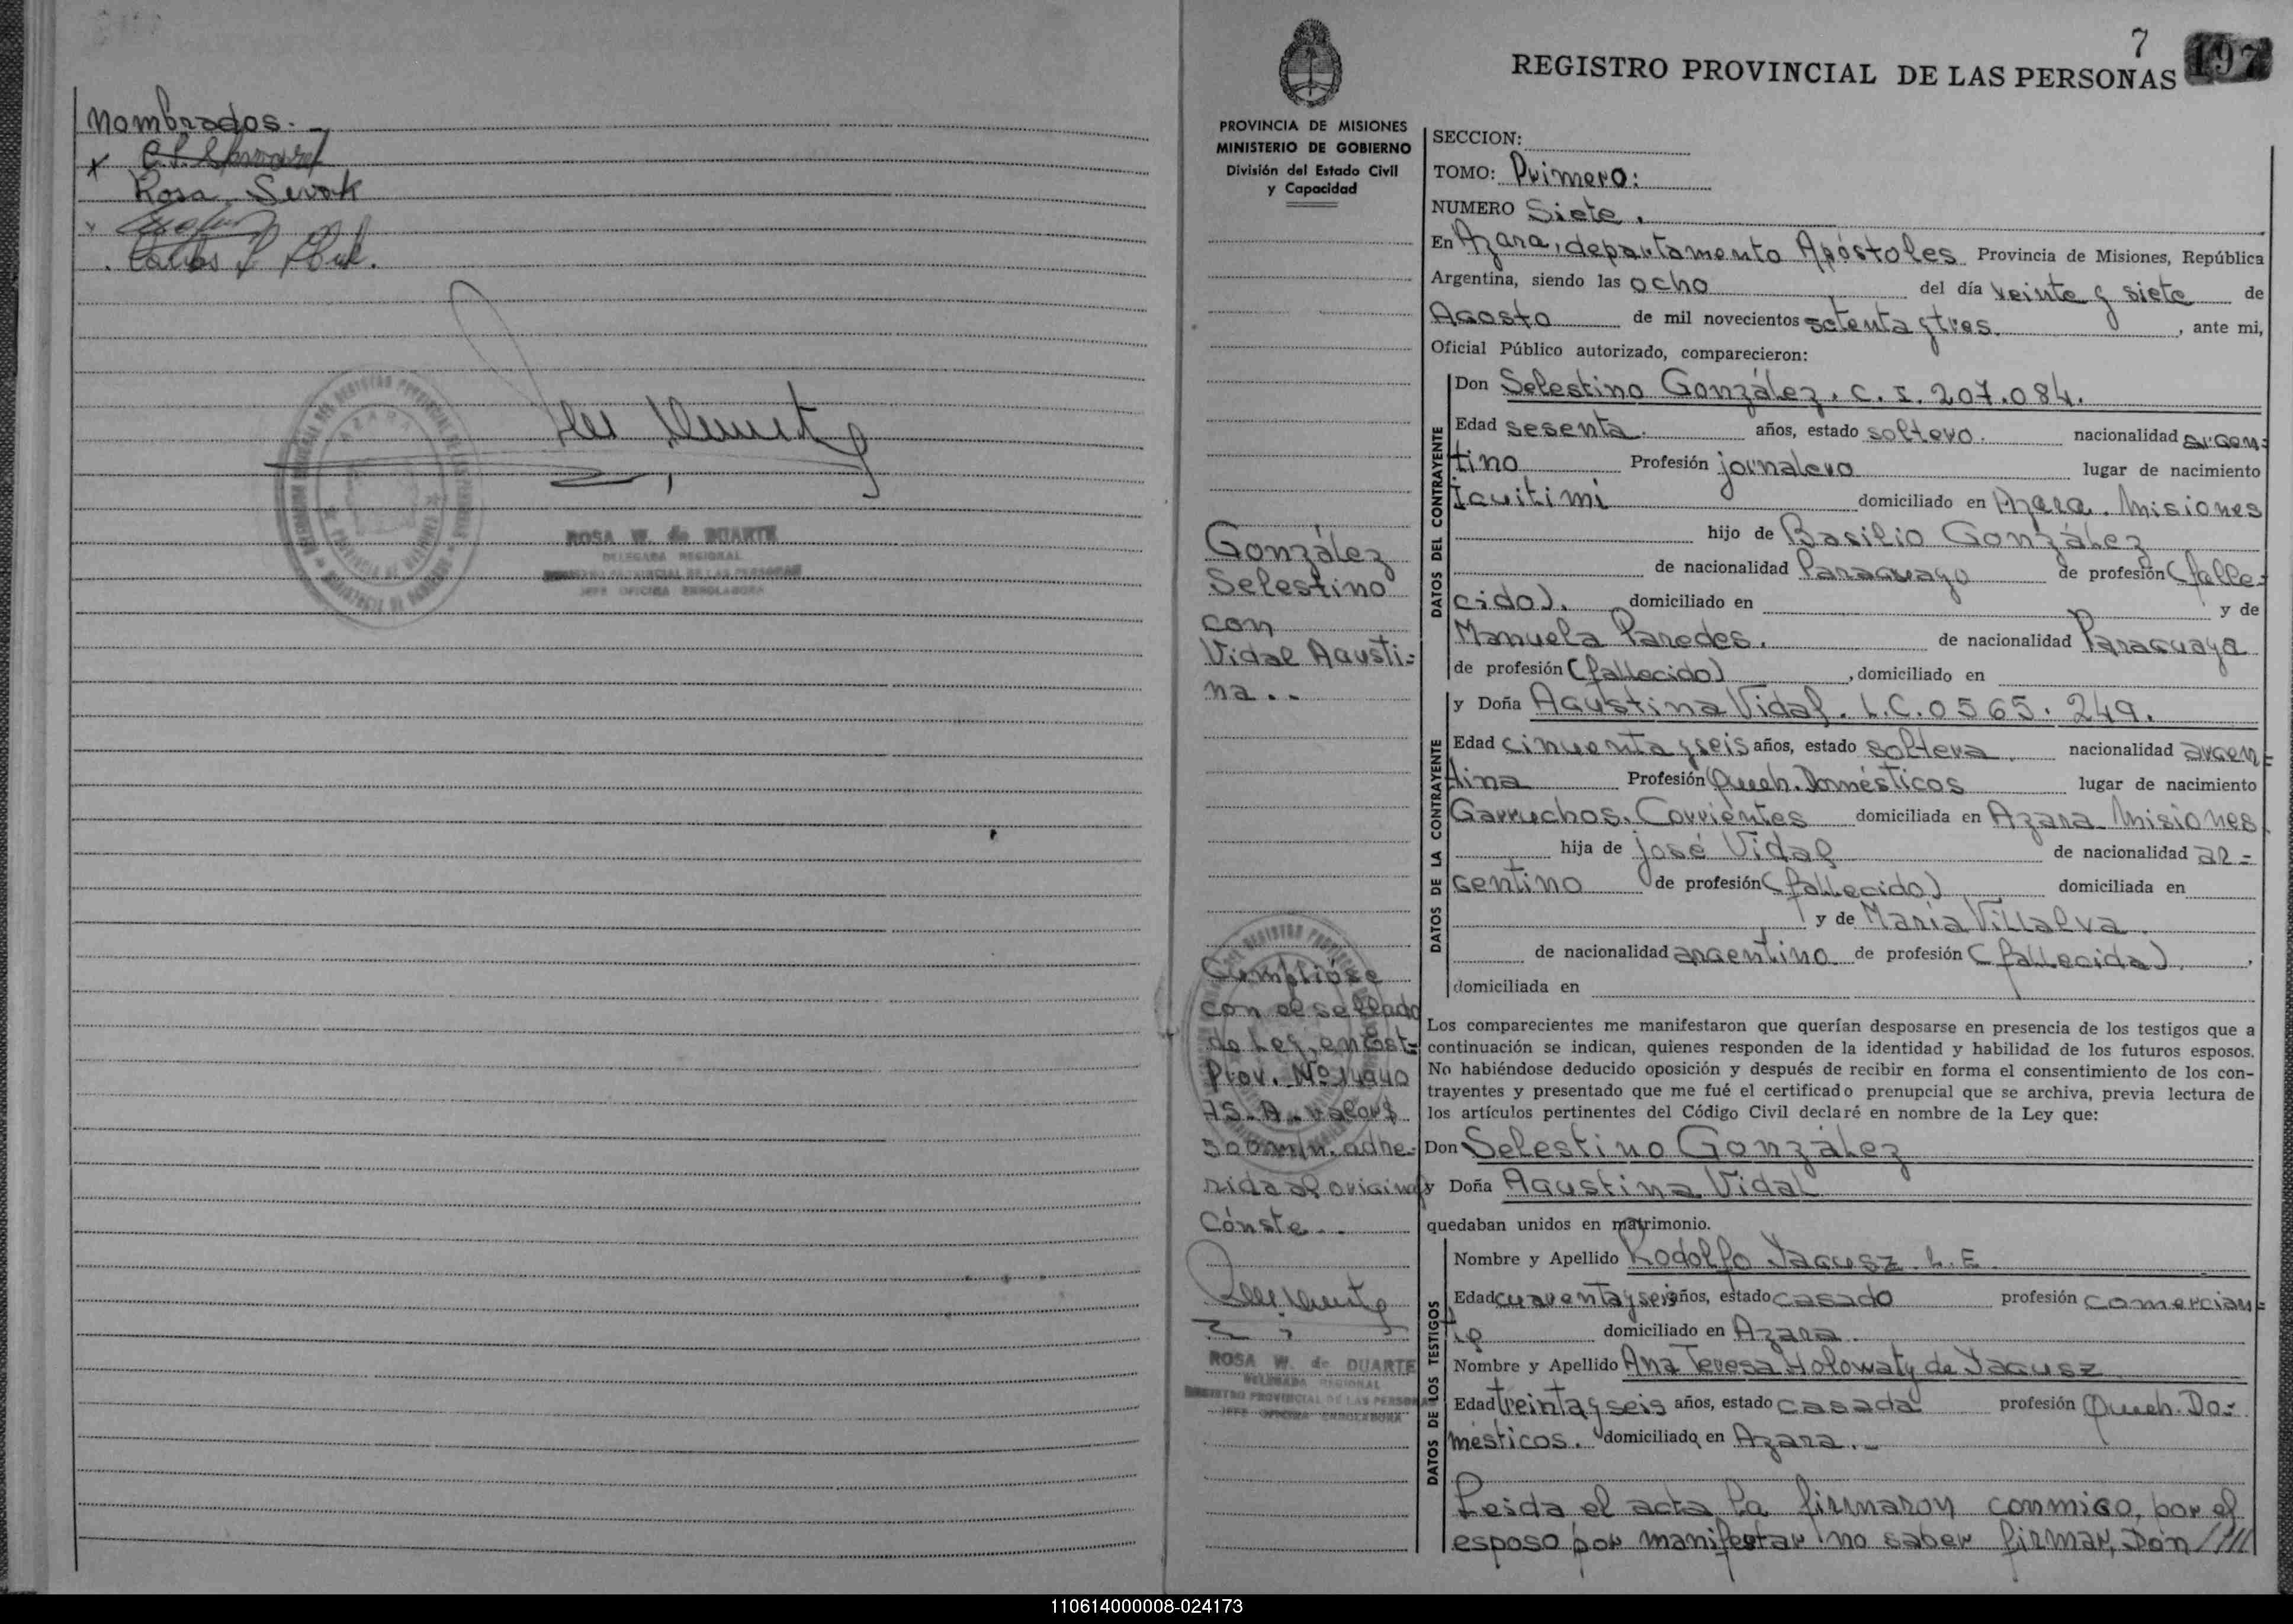 nombrados.-
x
Rosa Sevok
Carlos
REGISTRO PROVINCIAL DE LAS PERSONAS
ROSA W. de DUARTE
DELEGADA REGIONAL
REGISTRO PROVINCIAL DE LAS PERSONAS
JEFE OFICINA ENROLADORA
7
197
REGISTRO PROVINCIAL DE LAS PERSONAS
PROVINCIA DE MISIONES
MINISTERIO DE GOBIERNO
División del Estado Civil
y Capacidad
González
Selestino
con
Vidal Agusti=
na..
Cumplióse
con el sellado
de Ley, en Est=
Prov. Nº 14940
75-A- valor $
500 m/n. adhe-
rida al original
Cónste..
ROSA W. de DUARTE
DELEGADA REGIONAL
REGISTRO PROVINCIAL DE LAS PERSONAS
JEFE OFICINA ENROLADORA
SECCION:
TOMO: Primero:
NUMERO Siete.
En Azara, departamento Apóstoles Provincia de Misiones, República
Argentina, siendo las ocho del día veinte y siete de
Agosto de mil novecientos setenta y tres. , ante mi,
Oficial Público autorizado, comparecieron:
DATOS DEL CONTRAYENTE
Don Selestino González. C. I. 207.084.
Edad sesenta. años, estado soltero. nacionalidad argen=
tino Profesión jornalero lugar de nacimiento
domiciliado en Azara. Misiones
hijo de Basilio González
de nacionalidad Paraguayo de profesión (falle-
cido). domiciliado en y de
Manuela Paredes. de nacionalidad Paraguaya
de profesión (fallecido) , domiciliado en
DATOS DE LA CONTRAYENTE
y Doña Agustina Vidal. L.C. 0565.249.
Edad cincuenta y seis años, estado soltera nacionalidad argen=
tina Profesión Queh. Domésticos lugar de nacimiento
Garruchos. Corrientes domiciliada en Azara Misiones
hija de José Vidal de nacionalidad ar=
gentino de profesión (fallecido) domiciliada en
y de María Villalva.
de nacionalidad argentino de profesión (fallecida).
domiciliada en
Los comparecientes me manifestaron que querían desposarse en presencia de los testigos que a
continuación se indican, quienes responden de la identidad y habilidad de los futuros esposos.
No habiéndose deducido oposición y después de recibir en forma el consentimiento de los con-
trayentes y presentado que me fué el certificado prenupcial que se archiva, previa lectura de
los artículos pertinentes del Código Civil declaré en nombre de la Ley que:
Don Selestino González
y Doña Agustina Vidal
quedaban unidos en matrimonio.
DATOS DE LOS TESTIGOS
Nombre y Apellido Rodolfo Jagusz. L.E.
Edad cuarenta y seis años, estado casado profesión comercian=
te domiciliado en Azara.
Nombre y Apellido Ana Teresa Holowaty de Jagusz
Edad treinta y seis años, estado casada profesión Queh. Do=
mésticos. domiciliado en Azara.-
Leída el acta la firmaron conmigo, por el
esposo por manifestar no saber firmar, Don ////
110614000008-024173